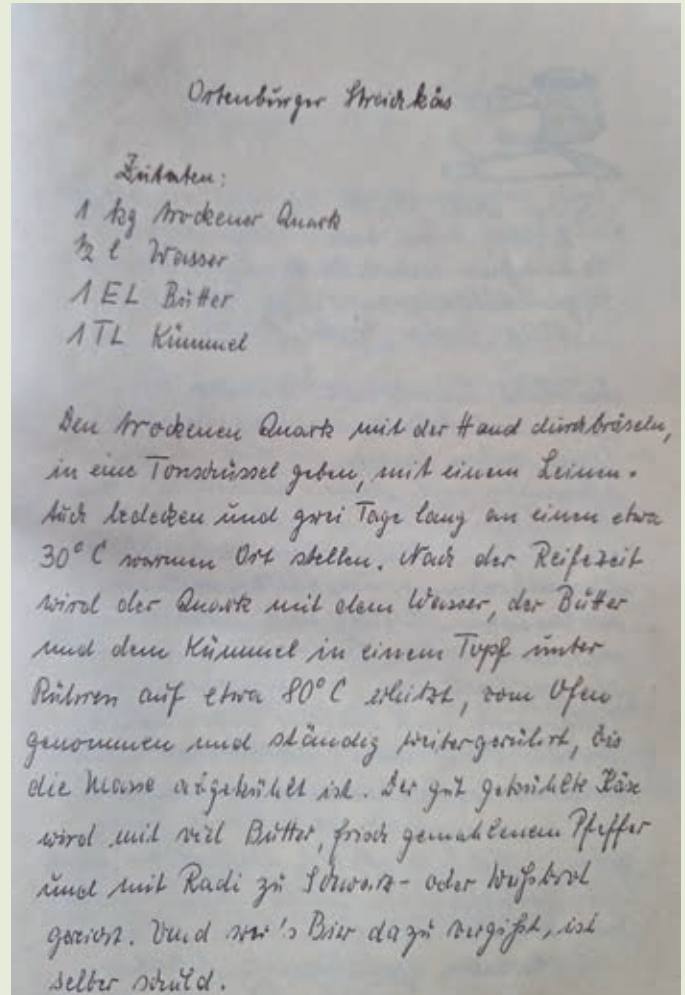 Ortenburger Streichkäs
Zutaten:
1 kg trockener Quark
½ l Wasser
1 EL Butter
1 TL Kümmel
Den trockenen Quark mit der Hand durchbröseln,
in eine Tonschüssel geben, mit einem Leinen-
tuch bedecken und zwei Tage lang an einen etwa
30° C warmen Ort stellen. Nach der Reifezeit
wird der Quark mit dem Wasser, der Butter
und dem Kümmel in einem Topf unter
Rühren auf etwa 80° C erhitzt, vom Ofen
genommen und ständig weitergerührt, bis
die Masse abgekühlt ist. Der gut gekühlte Käse
wird mit viel Butter, frisch gemahlenem Pfeffer
und mit Radi zu Schwarz- oder Weißbrot
gereicht. Und wer's Bier dazu vergißt, ist
selber schuld.